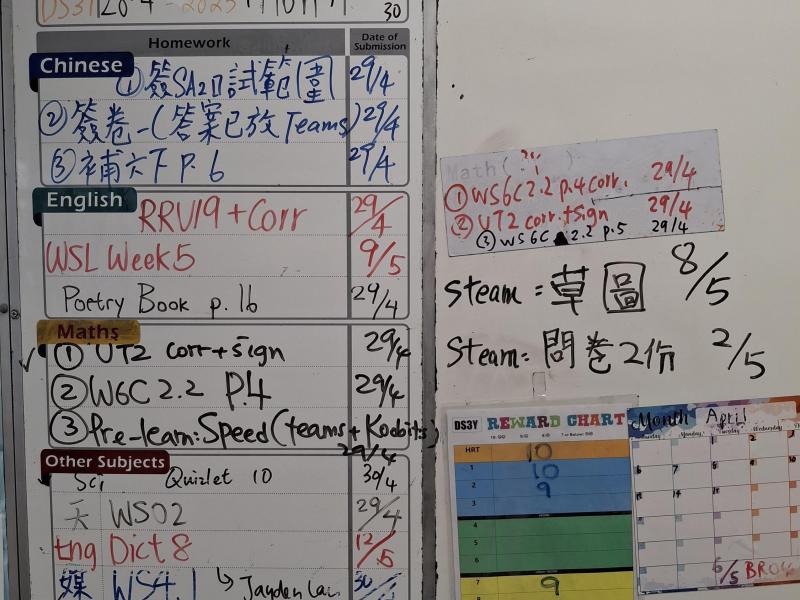 30
Homework
Date of Submission
Chinese
①簽SA2口試範圍 29/4
②簽卷-(答案已放Teams) 29/4
③補六下 P.6 29/4
English
RRV19+Corr 29/4
WSL Week5 9/5
Poetry Book p.16 29/4
Maths
① UT2 corr+sign 29/4
② W6C 2.2 P.4 29/4
③ Pre-learn: Speed (teams + Kobits)
29/4
Other Subjects
Sci Quizlet 10 30/4
天 WS02 29/4
Eng Dict 8 12/5
媒 WS4.1 ↳ Jayden Lai 30
Math
① WS6C 2.2 p.4 corr. 29/4
② UT2 corr.+sign 29/4
③ WS 6C 2.2 p.5 29/4
Steam = 草圖 8/5
Steam: 問卷2份 2/5
DS3Y REWARD CHART
HRT 10
1 10
2 9
4
5
6
7 9
Month April
Monday Tuesday Wednesday
2
6 7 8 9
6/5 BROW